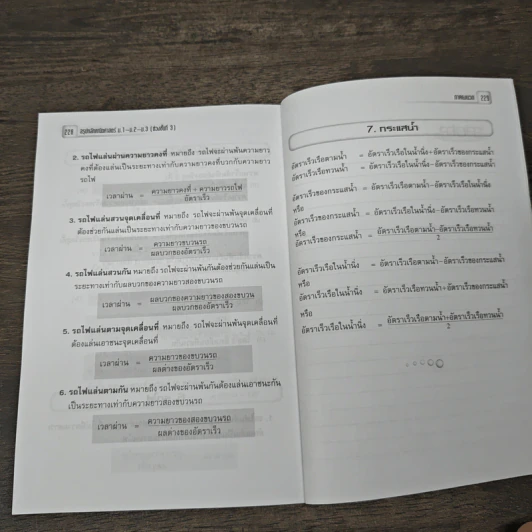 228 สรุปคณิตศาสตร์ ม.1-ม.2-ม.3 (ช่วงชั้นที่ 3)
2. รถไฟแล่นผ่านความยาวคงที่ หมายถึง รถไฟจะผ่านพ้นความยาว
คงที่ต้องแล่นเป็นระยะทางเท่ากับความยาวคงที่บวกกับความยาว
รถไฟ
เวลาผ่าน = ความยาวคงที่ + ความยาวรถไฟ
อัตราเร็ว
3. รถไฟแล่นสวนจุดเคลื่อนที่ หมายถึง รถไฟจะผ่านพ้นจุดเคลื่อนที่
ต้องช่วยกันแล่นเป็นระยะทางเท่ากับความยาวของขบวนรถ
เวลาผ่าน = ความยาวขบวนรถ
ผลบวกของอัตราเร็ว
4. รถไฟแล่นสวนกัน หมายถึง รถไฟจะผ่านพ้นกันต้องช่วยกันแล่นเป็น
ระยะทางเท่ากับผลบวกของความยาวสองขบวนรถ
เวลาผ่าน = ผลบวกของความยาวของสองขบวน
ผลบวกของอัตราเร็ว
5. รถไฟแล่นตามจุดเคลื่อนที่ หมายถึง รถไฟจะผ่านพ้นจุดเคลื่อนที่
ต้องแล่นเอาชนะจุดเคลื่อนที่
เวลาผ่าน = ความยาวของขบวนรถ
ผลต่างของอัตราเร็ว
6. รถไฟแล่นตามกัน หมายถึง รถไฟจะผ่านพ้นกันต้องแล่นเอาชนะกัน
เป็นระยะทางเท่ากับความยาวสองขบวนรถ
เวลาผ่าน = ความยาวของสองขบวนรถ
ผลต่างของอัตราเร็ว
ภาคผนวก 229
7. กระแสน้ำ
อัตราเร็วเรือตามน้ำ = อัตราเร็วเรือในน้ำนิ่ง+อัตราเร็วของกระแสน้ำ
อัตราเร็วเรือทวนน้ำ = อัตราเร็วเรือในน้ำนิ่ง-อัตราเร็วของกระแสน้ำ
อัตราเร็วของกระแสน้ำ = อัตราเร็วเรือตามน้ำ-อัตราเร็วเรือในน้ำนิ่ง
หรือ
อัตราเร็วของกระแสน้ำ = อัตราเร็วเรือในน้ำนิ่ง-อัตราเร็วเรือทวนน้ำ
หรือ
อัตราเร็วของกระแสน้ำ = อัตราเร็วเรือตามน้ำ-อัตราเร็วเรือทวนน้ำ
2
อัตราเร็วเรือในน้ำนิ่ง = อัตราเร็วเรือตามน้ำ-อัตราเร็วของกระแสน้ำ
หรือ
อัตราเร็วเรือในน้ำนิ่ง = อัตราเร็วเรือทวนน้ำ+อัตราเร็วของกระแสน้ำ
หรือ
อัตราเร็วเรือในน้ำนิ่ง = อัตราเร็วเรือตามน้ำ+อัตราเร็วเรือทวนน้ำ
2